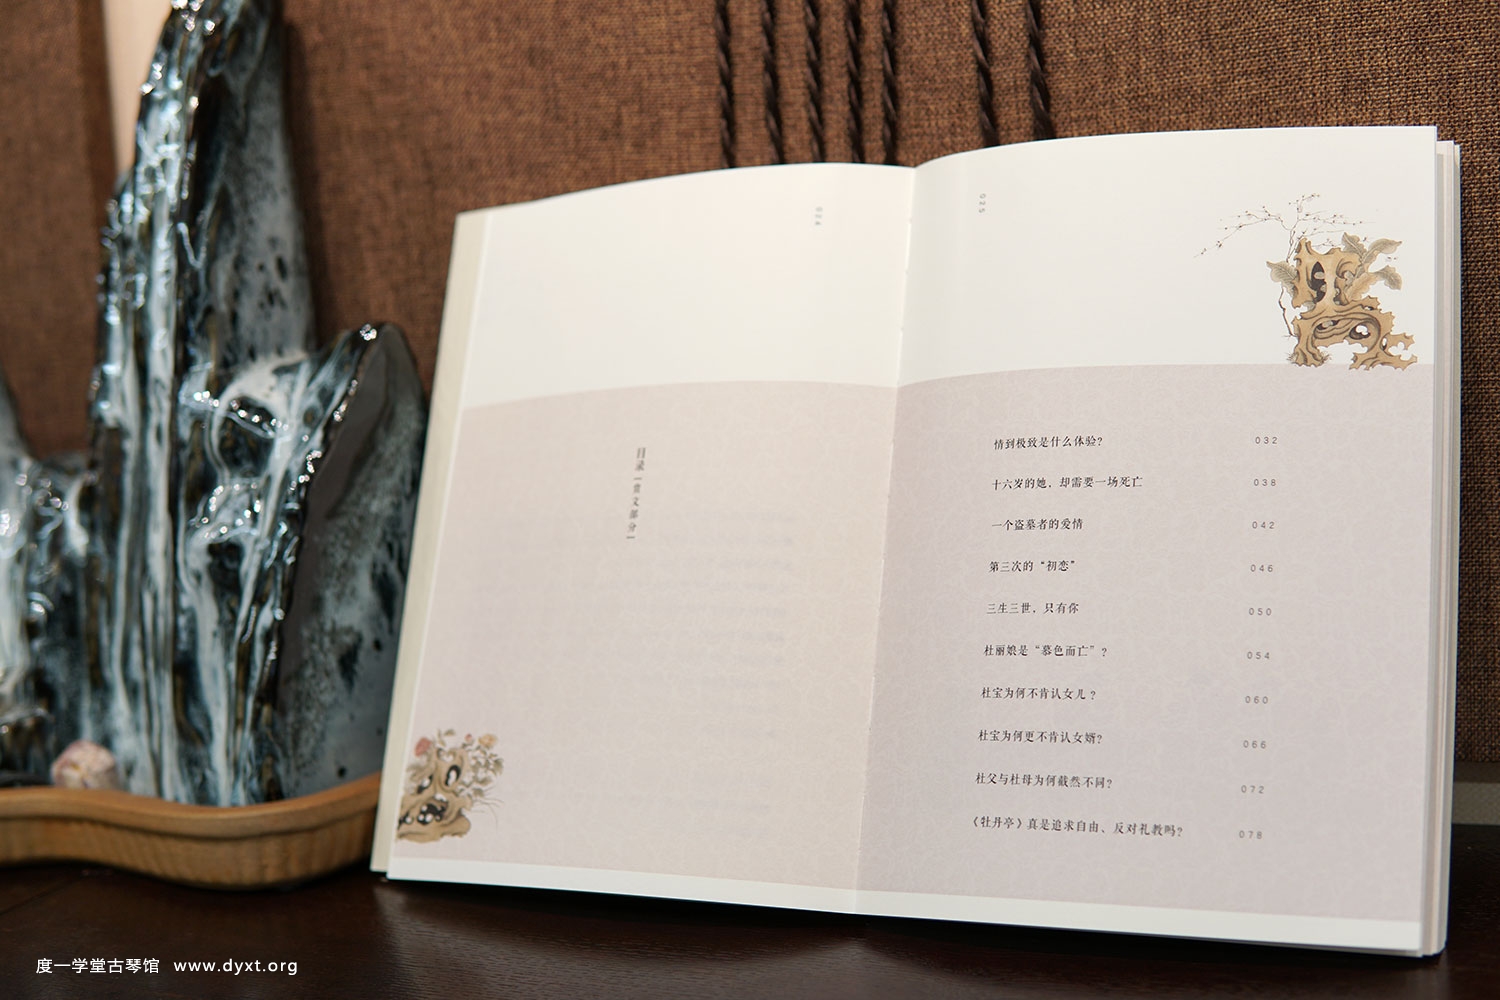 024
目录【赏文部分】
025
情到极致是什么体验? 032
十六岁的她，却需要一场死亡 038
一个盗墓者的爱情 042
第三次的“初恋” 046
三生三世，只有你 050
杜丽娘是“慕色而亡”? 054
杜宝为何不肯认女儿? 060
杜宝为何更不肯认女婿? 066
杜父与杜母为何截然不同? 072
《牡丹亭》真是追求自由、反对礼教吗? 078
度一学堂古琴馆 www.dyxt.org